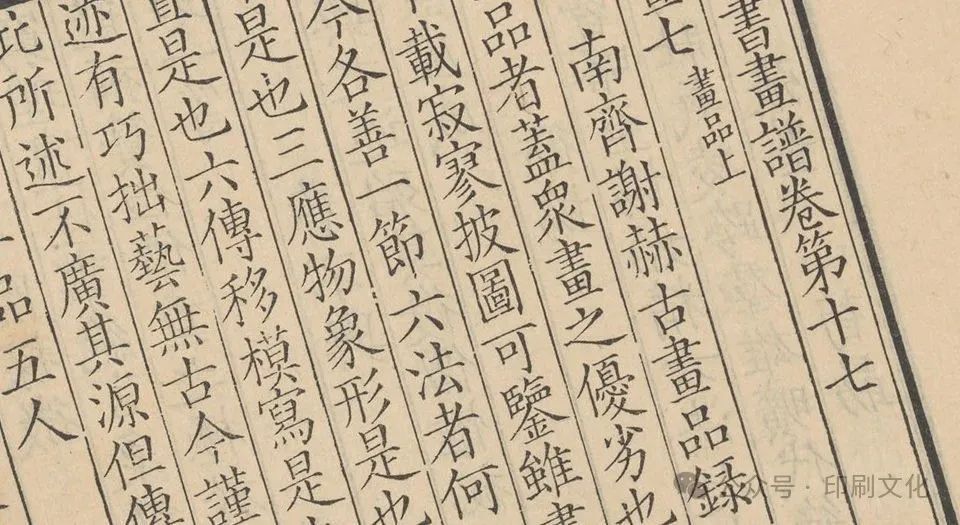 書畫譜卷第十七
七 畫品上
南齊謝赫古畫品録
品者蓋衆畫之優劣也
載寂寥披圖可鑒雖
今各善一節六法者何
是也三應物象形是也
是也六傳移模寫是
迹有巧拙藝無古今謹
此所述不廣其源但傳
品五人
公众号·印刷文化